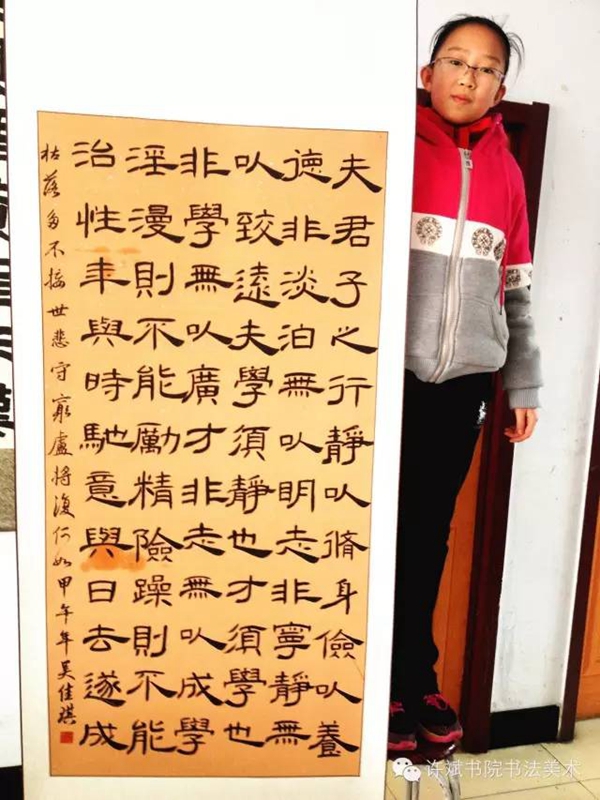 夫君子之行靜以脩身儉以養
德非淡泊無以明志非寧靜無
以致遠夫學須靜也才須學也
非學無以廣才非志無以成學
淫漫則不能勵精險躁則不能
治性年與時馳意與日去遂成
枯落多不接世悲守窮廬將復何如甲午年吴佳琪
许斌书院书法美术